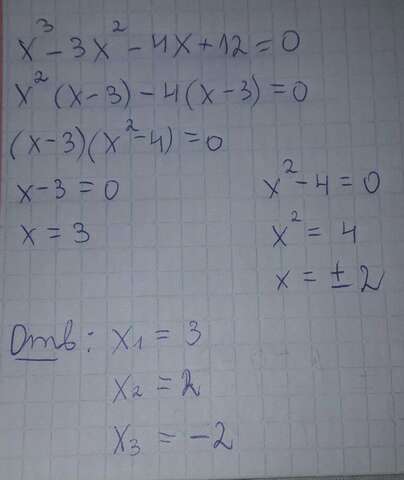 x³ - 3x² - 4x + 12 = 0
x² (x - 3) - 4 (x - 3) = 0
(x - 3)(x² - 4) = 0
x - 3 = 0
x = 3
x² - 4 = 0
x² = 4
x = ± 2
Отв: x₁ = 3
x₂ = 2
x₃ = -2